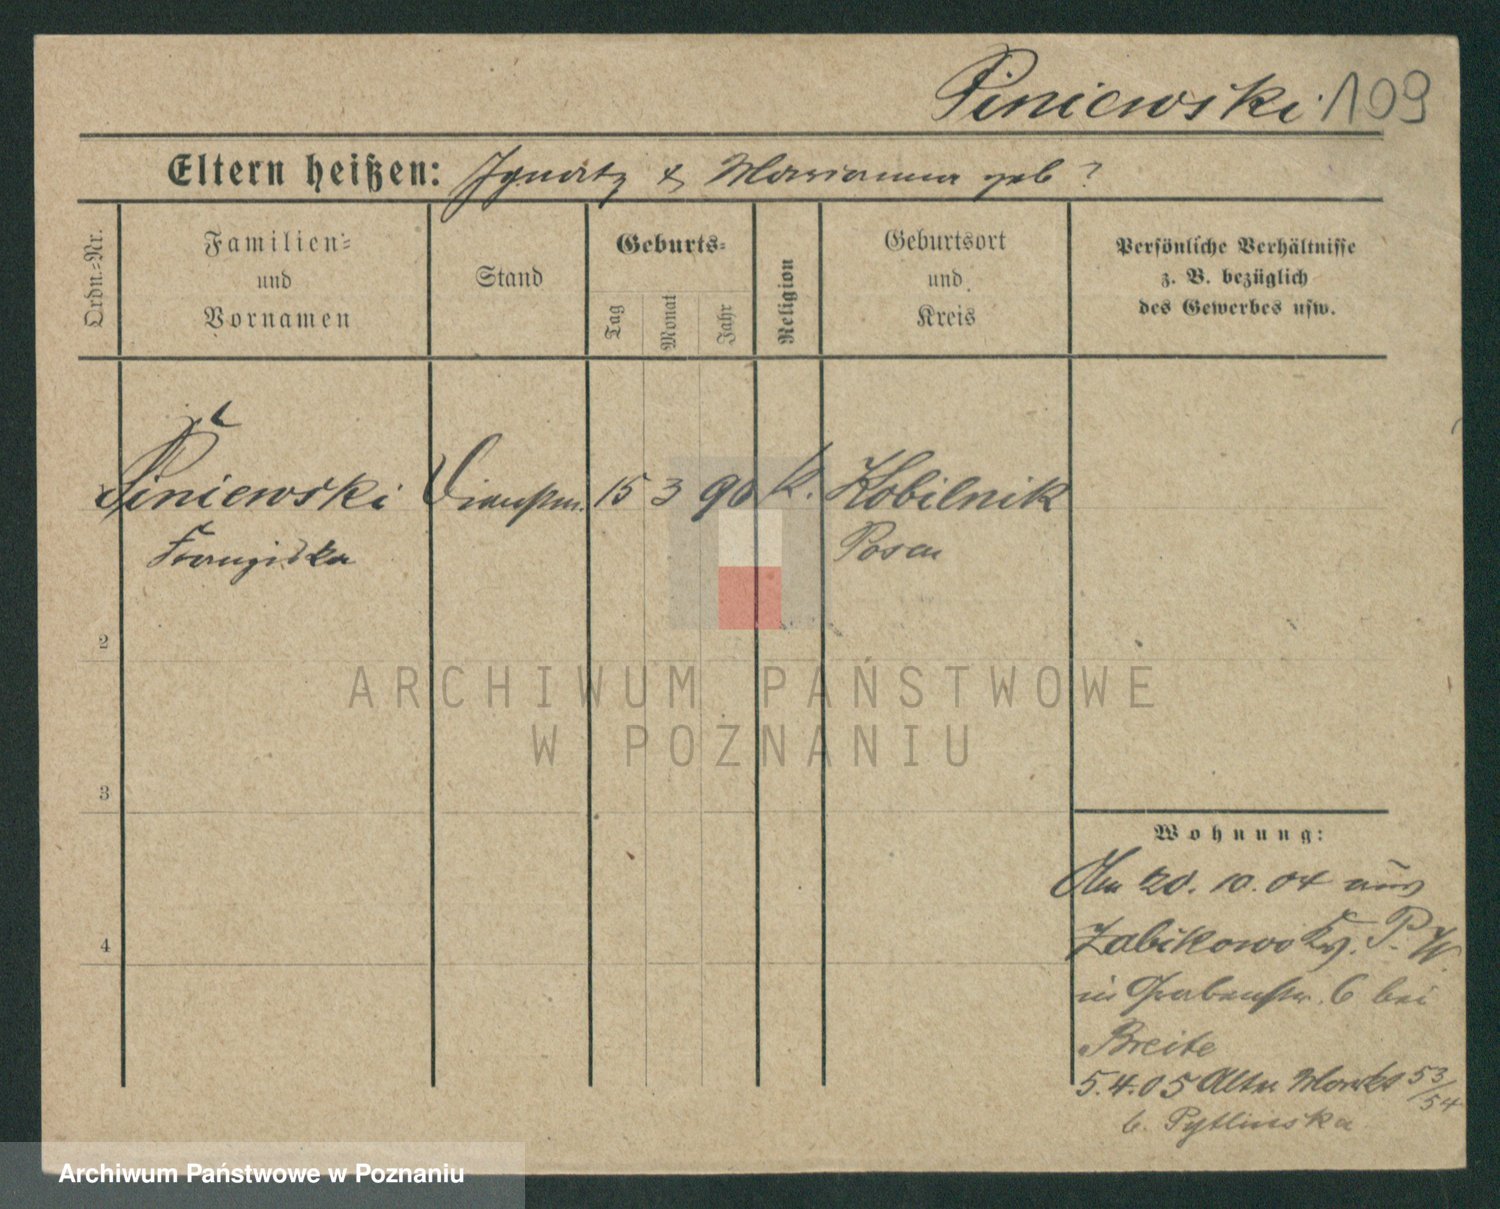 Piniewski 109
Eltern heißen: Ignatz & Marianna geb ?
Ordn.=Nr.
Familien=
und
Vornamen
Stand
Geburts=
Tag
Monat
Jahr
Religion
Geburtsort
und
Kreis
Persönliche Verhältnisse
z. B. bezüglich
des Gewerbes usw.
Piniewski Dienstm. 15 3 90 k. Kobilnik
Franziska Posen
2
3
4
Wohnung:
20. 10. 04 aus
Zabikowo Krs. P. W.
in Grabenstr. 6 bei
Breite
5.4.05 Alter Markt 53/54
b. Pytlinska
ARCHIWUM PAŃSTWOWE
W POZNANIU
Archiwum Państwowe w Poznaniu